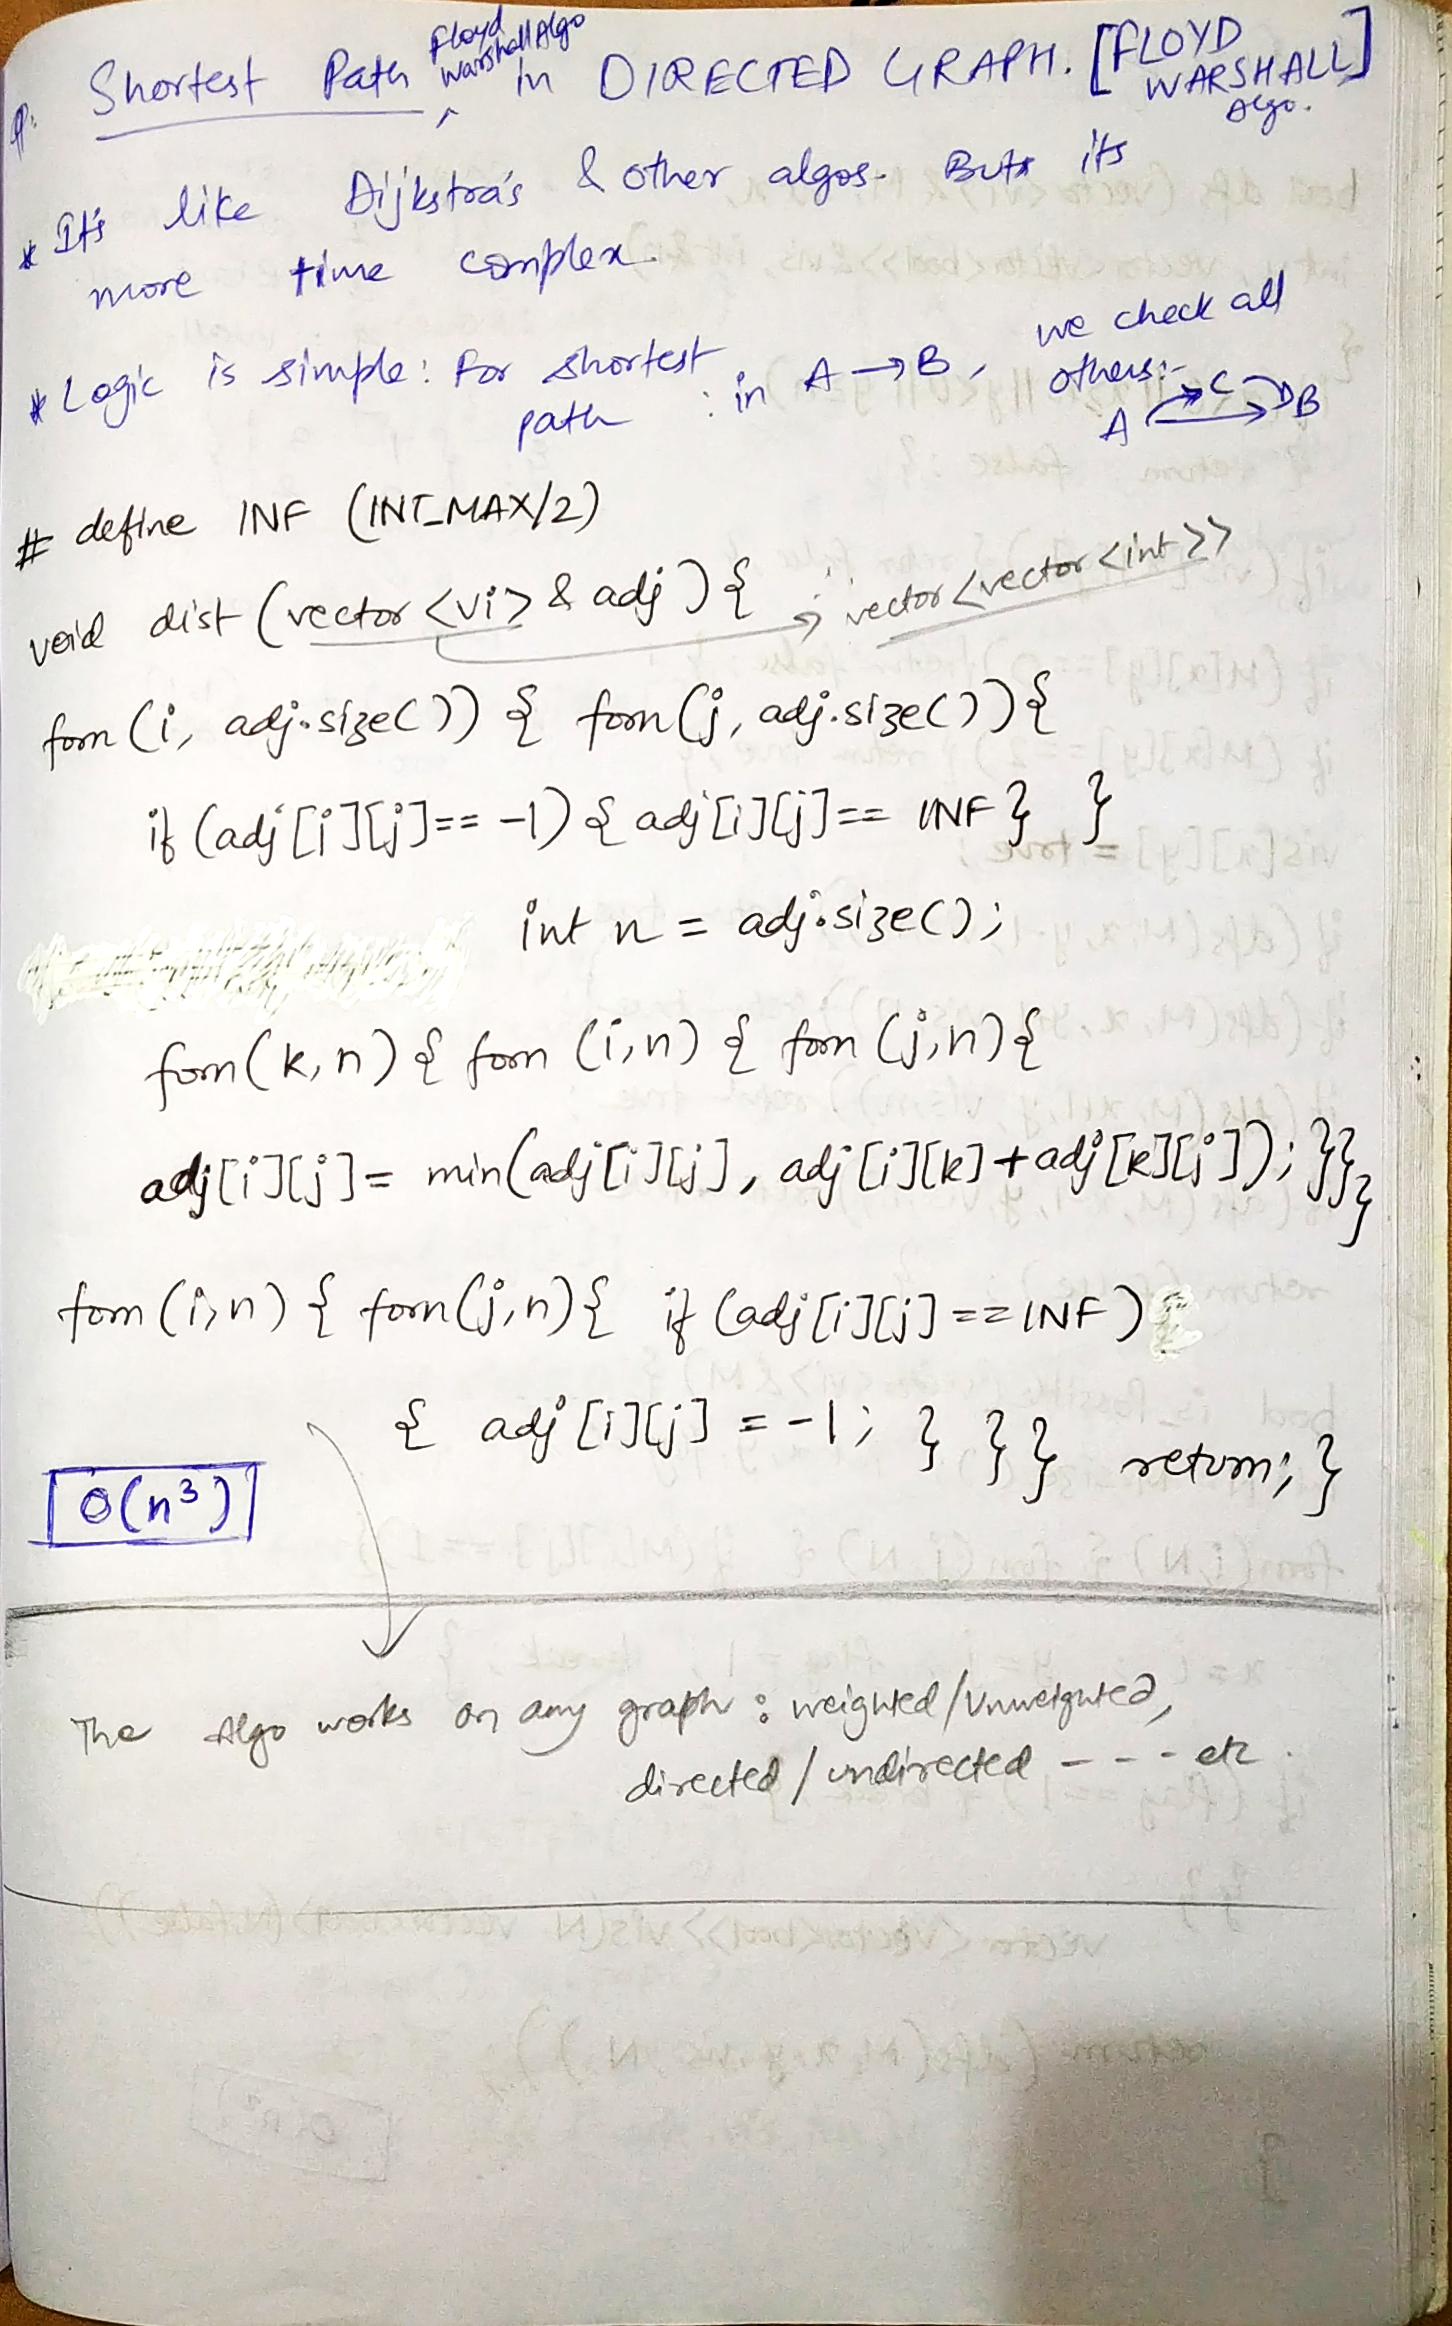 P: Shortest Path Floyd Warshall Algo in DIRECTED GRAPH. [FLOYD WARSHALL] Algo.
* It's like Dijkstra's & other algos. But its
more time complex.
* Logic is simple: For shortest path : in A → B, we check all others:-
A → C → B
# define INF (INT_MAX/2)
void dist (vector <vi> & adj) { → vector <vector <int>>
forn (i, adj.size()) { forn (j, adj.size()) {
if (adj [i][j] == -1) { adj [i][j] == INF } }
int n = adj.size();
forn (k, n) { forn (i, n) { forn (j, n) {
adj [i][j] = min(adj [i][j], adj [i][k] + adj [k][j]); }}}
forn (i, n) { forn (j, n) { if (adj [i][j] == INF)
{ adj [i][j] = -1; } } } return; }
O(n³)
The Algo works on any graph : weighted/unweighted,
directed / undirected - - - etc.